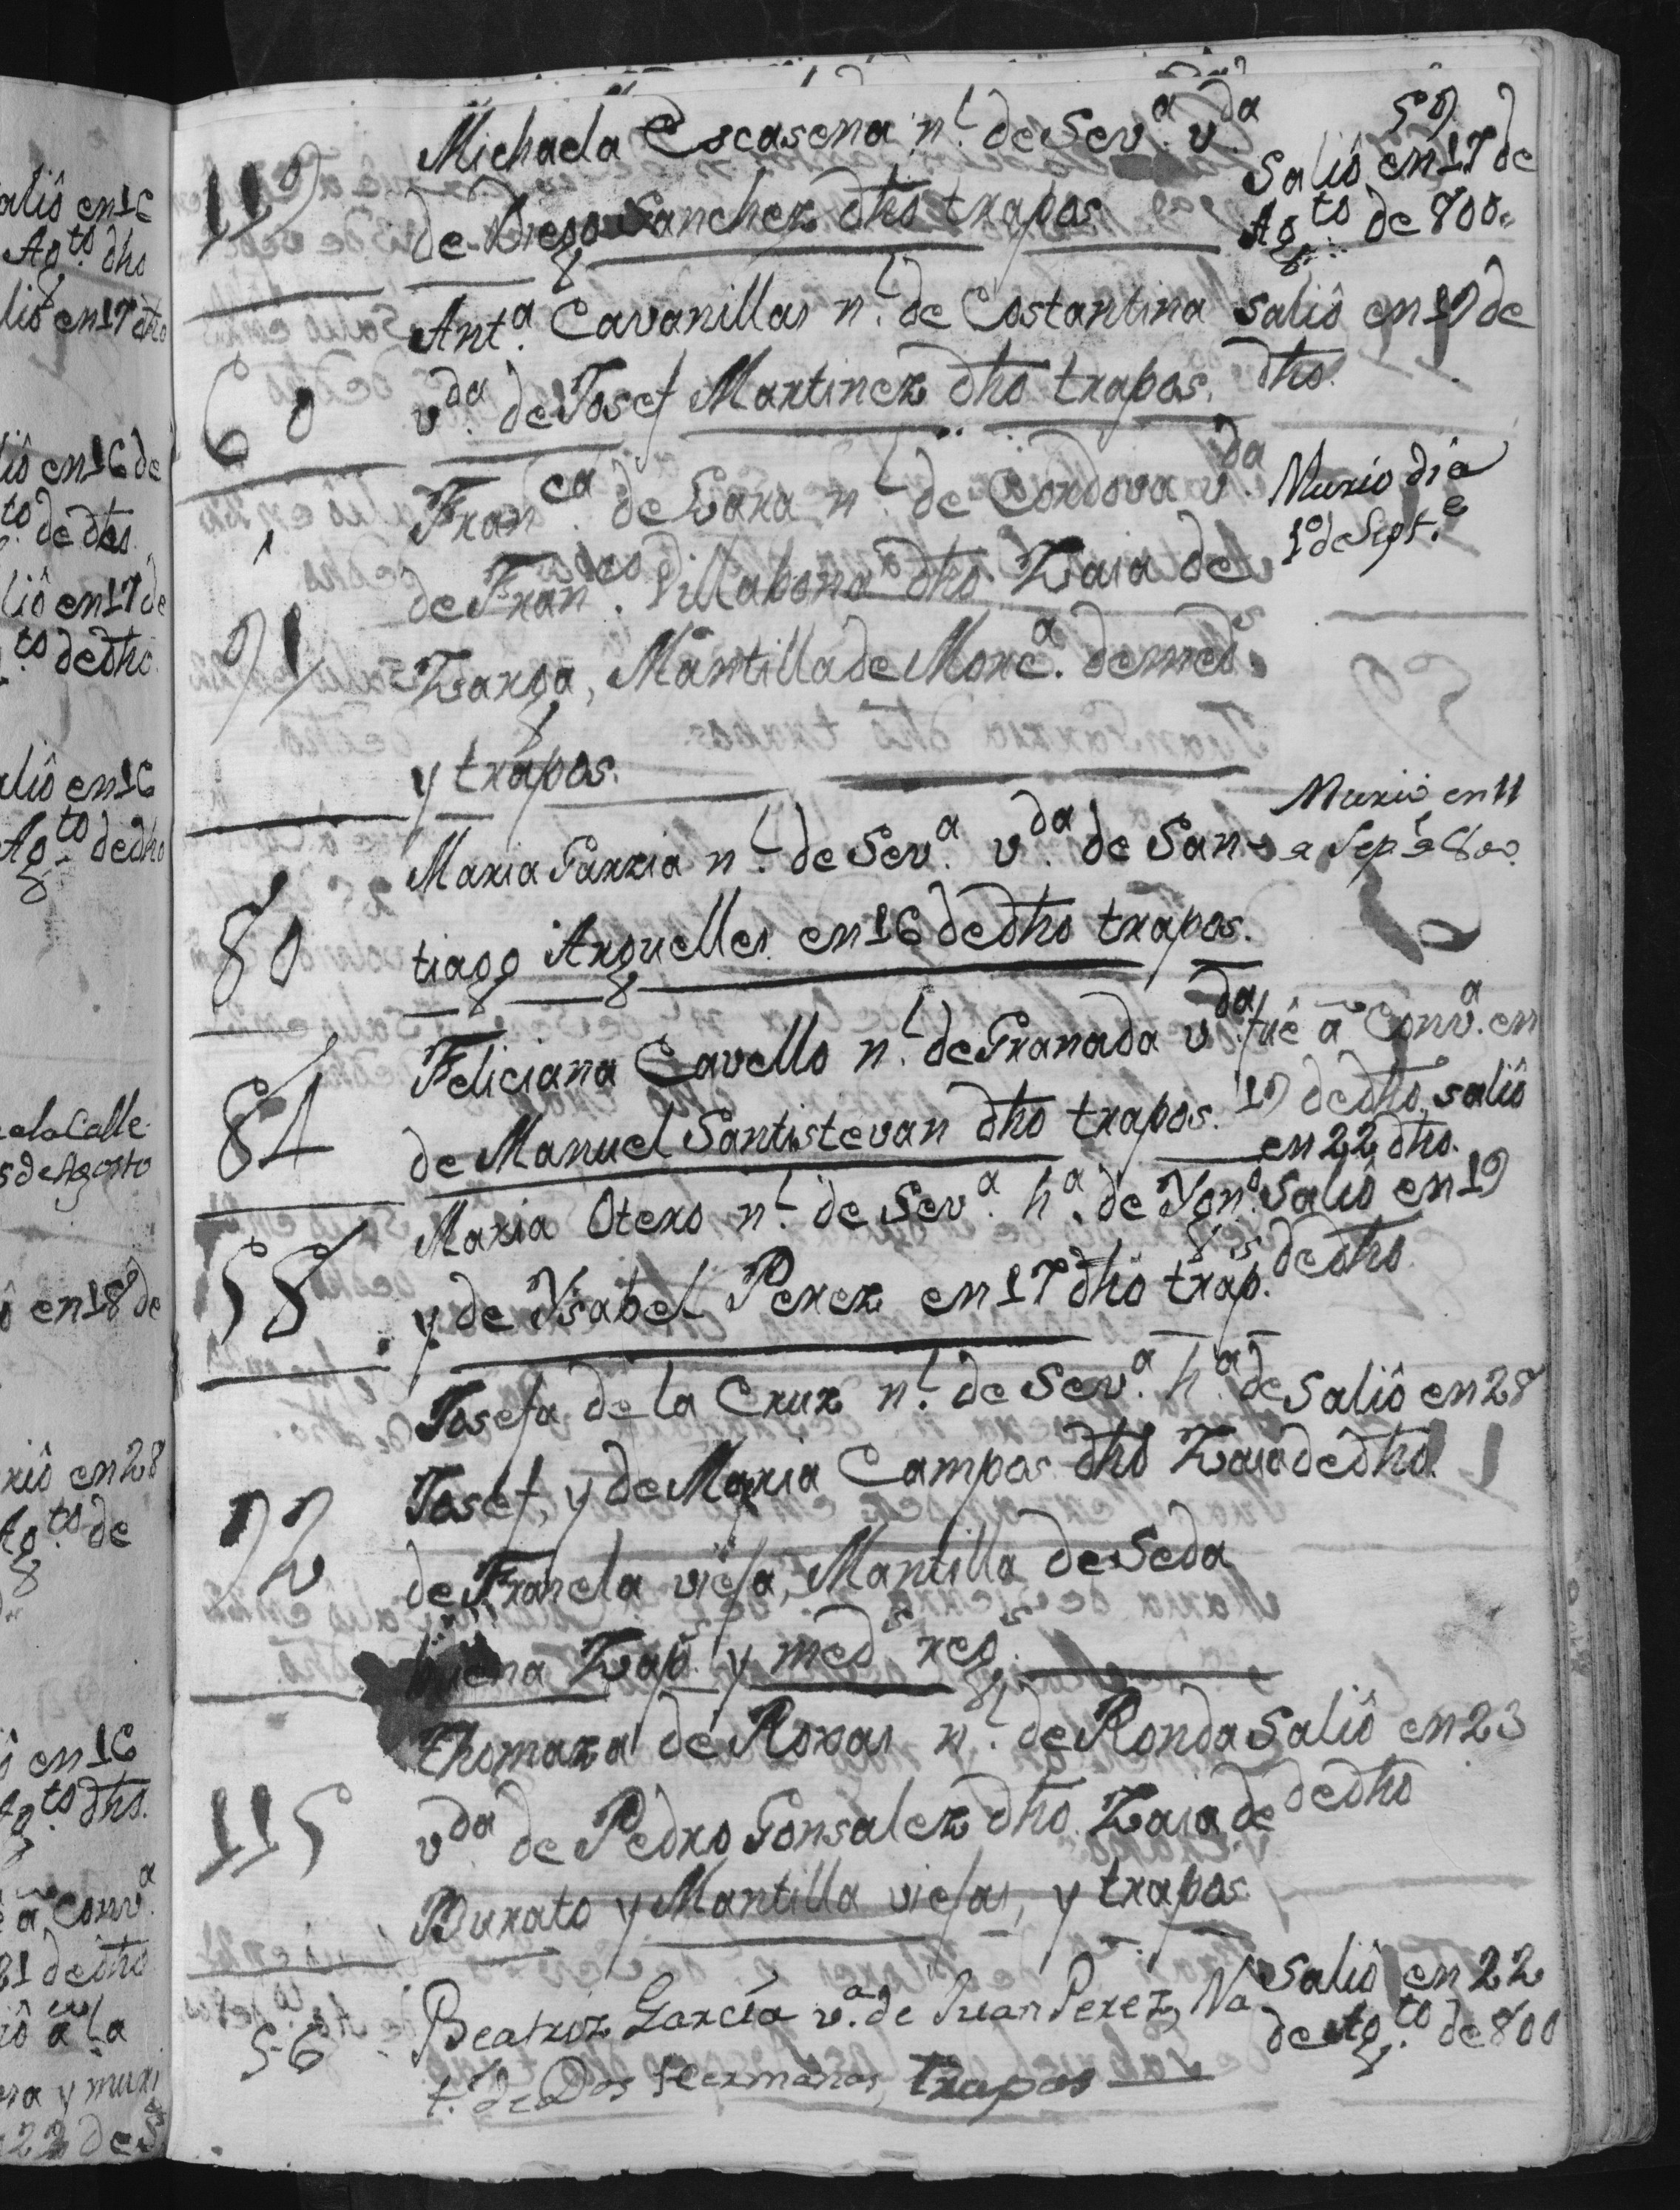 59
119
Michaela Escasena n.l de Sev.a v.da
de Diego Sanchez dho trapos
Salió en 17 de
Ag.to de 800.
60
Ant.a Cavanillas n.l de Costantina
v.da de Josef Martinez dho trapos.
salió en 19 de
dho.
91
Fran.ca de Lara n.l de Cordova v.da
de Fran.co Villabona dho Zaia de
Zarga, Mantilla de Mor.a de med.s
y trapos.
Murio dia
1º de Sept.e
80
Maria Garzia n.l de Sev.a v.da de San-
tiago Arguelles en 16 de dho trapos.
Murió en 11
Sep.e 800
84
Feliciana Cavello n.l de Granada v.da
de Manuel Santistevan dho trapos.
fuê â Conv.a en
19 de dho, salió
en 22 dho.
58
Maria Otero n.l de Sev.a h.a de Ygn.o
y de Ysabel Perez en 17 dho trap.s
Salió en 19
de dho
92
Josefa de la Cruz n.l de Sev.a h.a de
Josef, y de Maria Campos dho Zaia
de Franela vieja, Mantilla de Seda
buena Zap.s y med.s reg.s
Salió en 28
de dho
115
Thomaza de Roxas n.l de Ronda
v.da de Pedro Gonsalez dho Zaia de
Burato y Mantilla viejas, y trapos
Salió en 23
de dho
56
Beatriz García v.a de Juan Perez, Na
t. de Dos Hermanas, trapos
Salió en 22
de Ag.to de 800